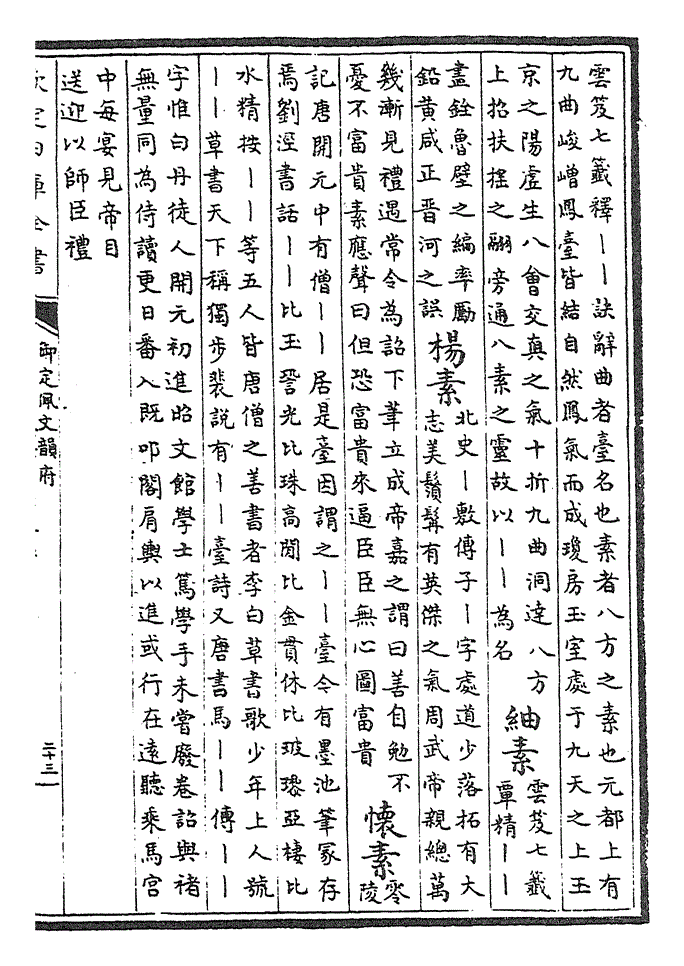 雲笈七籤釋――訣辭曲者臺名也素者八方之素也元都上有
九曲峻嶒鳳臺皆結自然鳳氣而成瓊房玉室處于九天之上玉
京之陽虛生八會交真之氣十折九曲洞達八方
上招扶揺之翮旁通八素之靈故以――為名
紬素
雲笈七籤
覃精――
盡銓魯壁之編率勵
鉛黄咸正晋河之誤
楊素
北史―敷傳子―字處道少落拓有大
志美鬚髯有英傑之氣周武帝親總萬
幾漸見禮遇常令為詔下筆立成帝嘉之謂曰善自勉不
憂不富貴素應聲曰但恐富貴來逼臣臣無心圖富貴
懷素
零
陵
記唐開元中有僧――居是臺因謂之――臺今有墨池筆冢存
焉劉涇書話――比玉瑩光比珠高閒比金貫休比玻瓈亞棲比
水精按――等五人皆唐僧之善書者李白草書歌少年上人號
――草書天下稱獨步裴説有――臺詩又唐書馬――傳――
字惟白丹徒人開元初進昭文館學士篤學手未嘗廢卷詔與褚
無量同為侍讀更日番入既叩閤肩輿以進或行在逺聽乗馬宫
中每宴見帝目
送迎以師臣禮
欽定四庫全書
御定佩文韻府
二十三